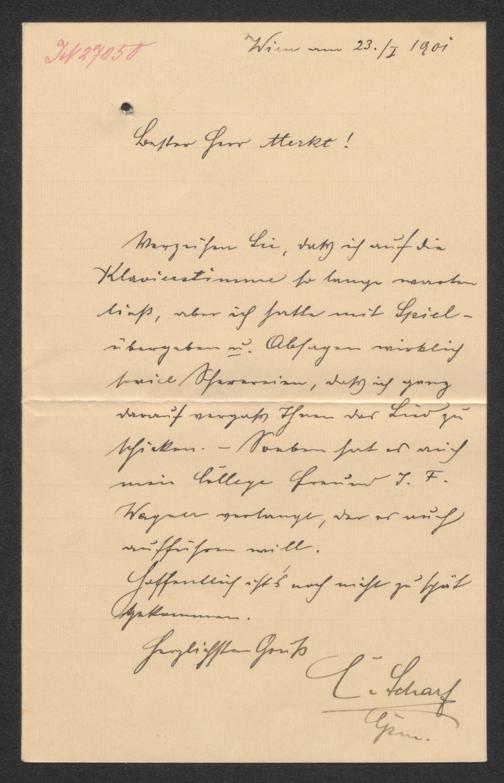 IN 27050
Wien am 23./I 1901
Bester Herr Merkt!
Verzeihen Sie, daß ich auf die
Klavierstimme so lange warten
ließ, aber ich hatte mit Spiel-
übergeben u. Absagen wirklich
soviel Scherereien, daß ich ganz
darauf vergaß Ihnen das Lied zu
schicken. – Soeben hat es auch
mein College Freund J. F.
Wagner verlangt, der es auch
aufführen will.
Hoffentlich ist's noch nicht zu spät
gekommen.
Herzlichsten Gruß
Scharf